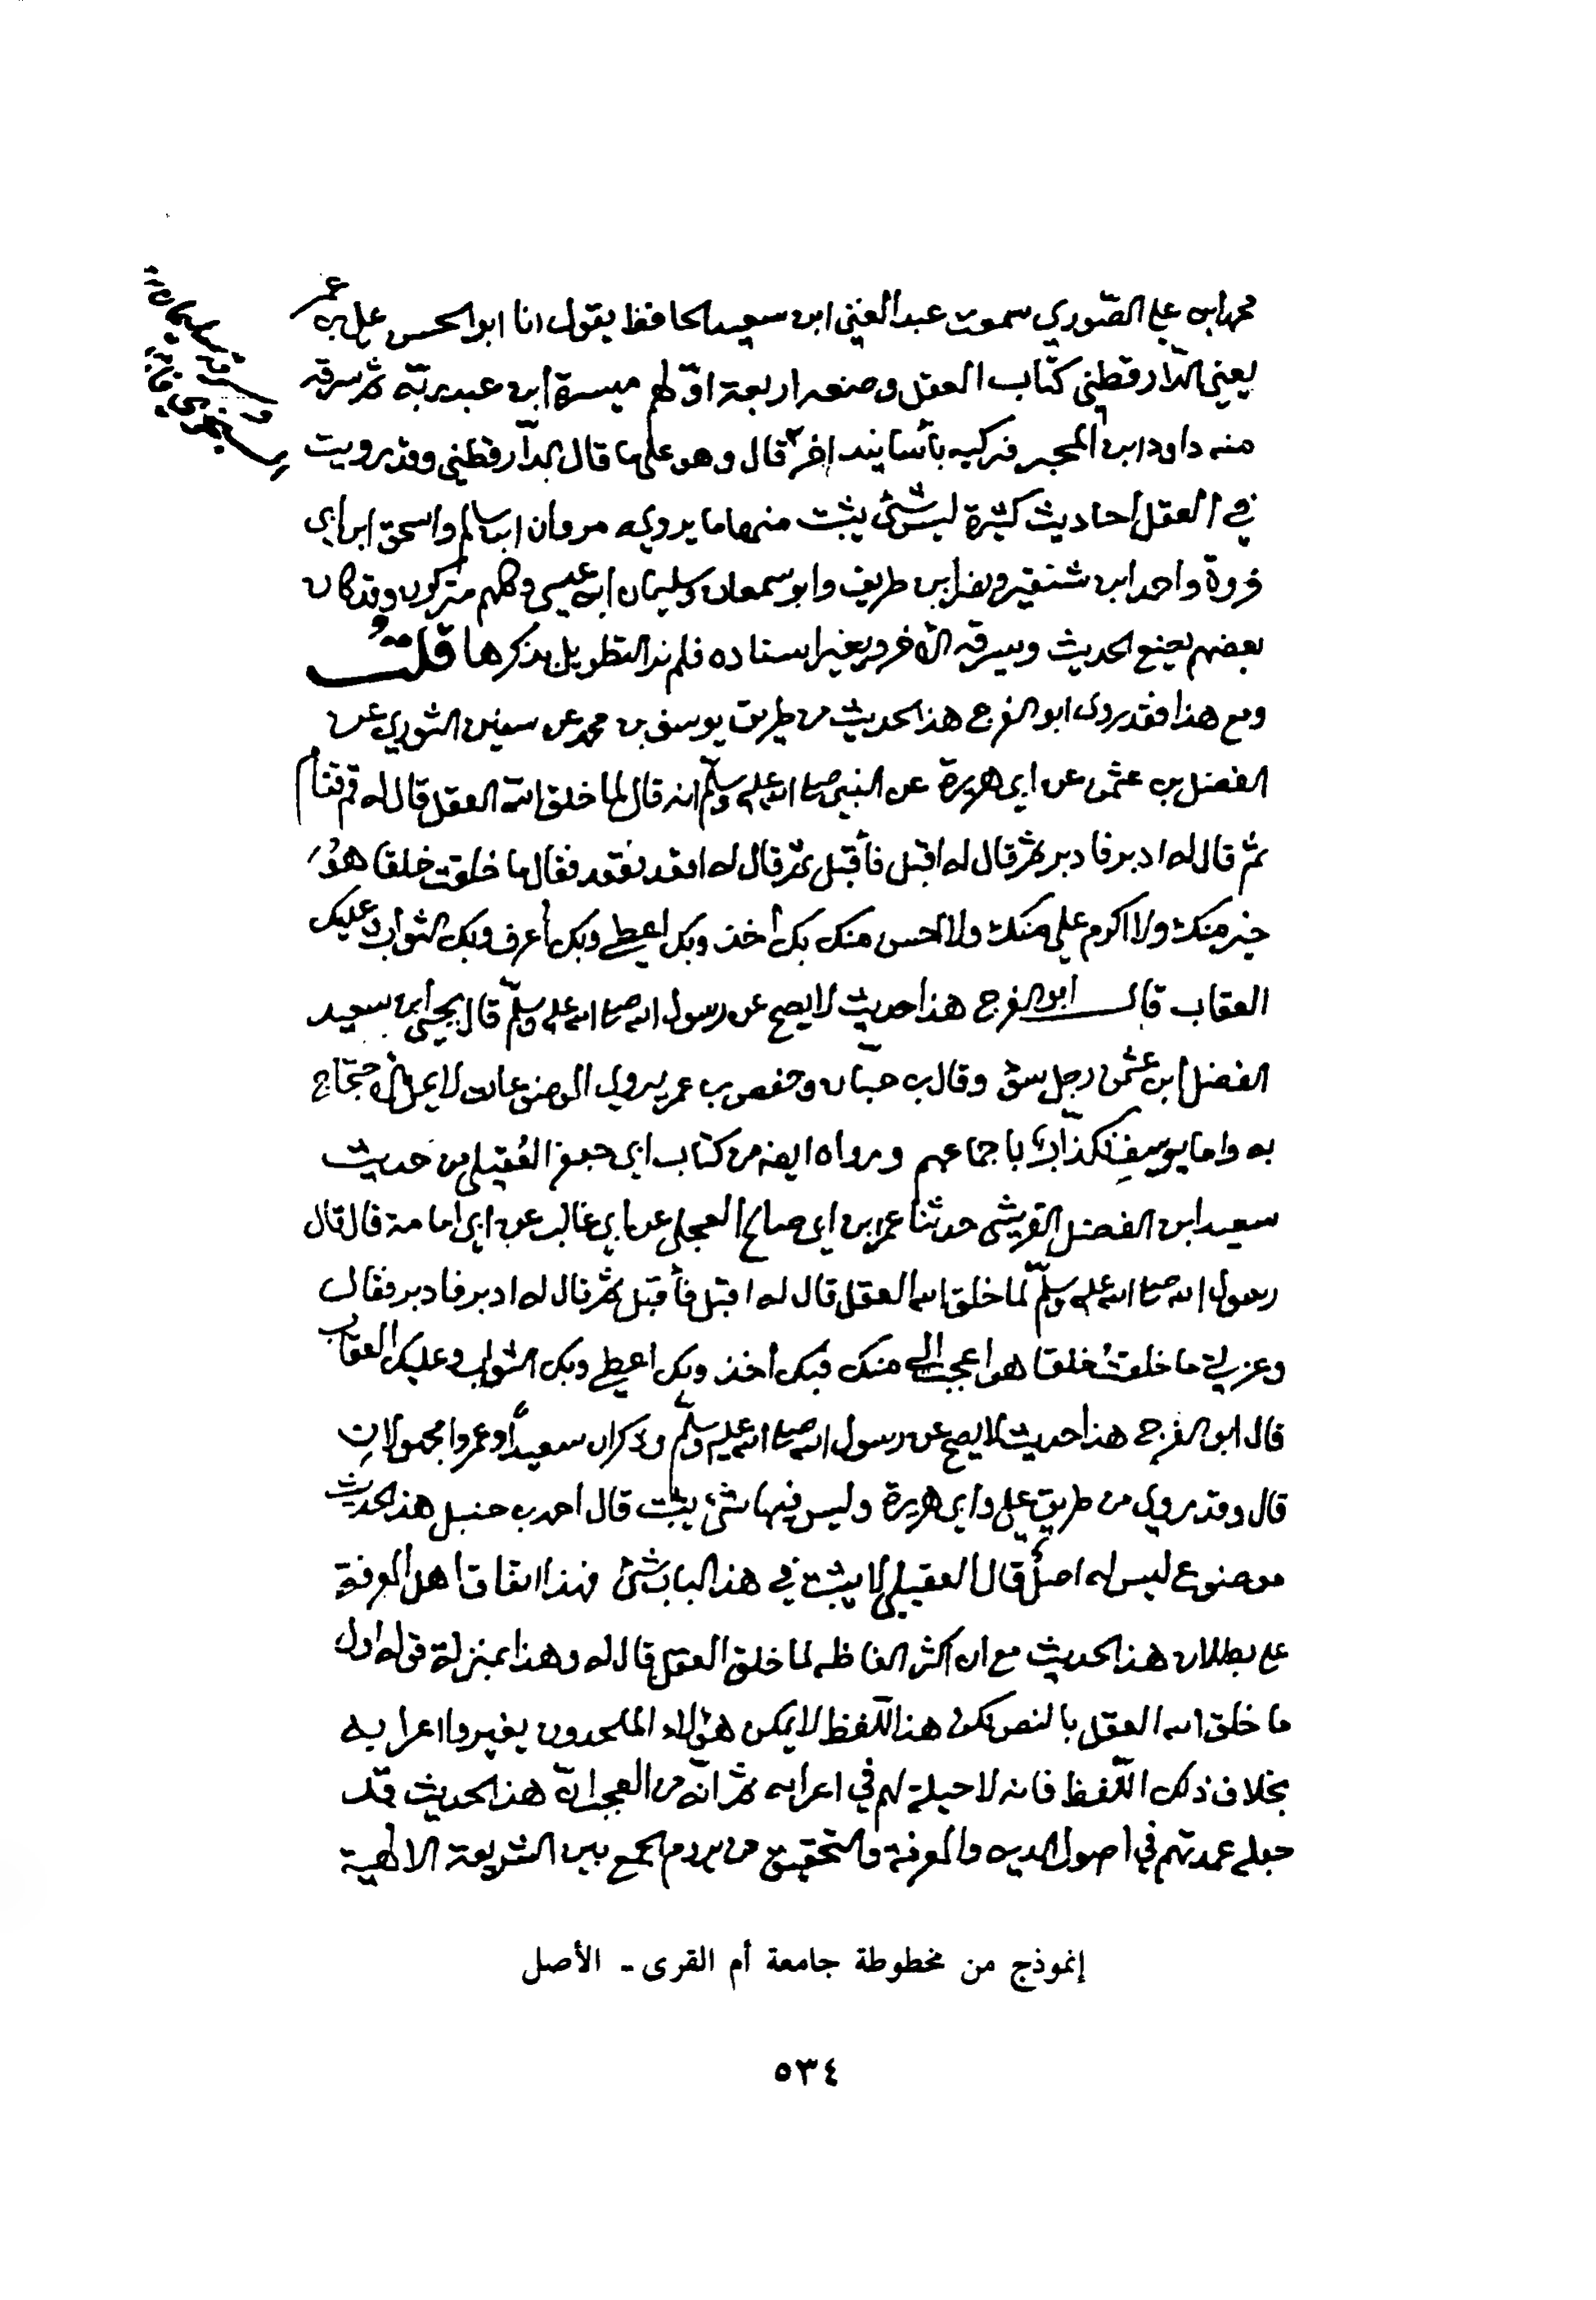 محمد ابن علي الصّوري سمعت عبد الغني ابن سعيد الحافظ يقول انا ابو الحسن علي بن عمر
يعني الدّارقطني كتاب العقل وضعه اربعة اوّلهم ميسرة ابن عبد ربّه ثم سرقه
منه داود ابن المحبر فركبه بأسانيد اخر قال وهو على ما قال الدّارقطني وقد رويت
في العقل احاديث كثيرة ليس شئ يثبت منها ما يرويه مروان ابن سالم واسحق ابن ابي
فروة واحمد ابن ونصر ابن طريف وابو سمعان وسليمان ابن عيسى وكلهم متركون وقد كان
بعضهم يضع الحديث ويسرقه الاخر ويغير اسناده فلم نر التطويل بذكرها قلتُ
ومع هذا فقد روى ابو الفرج هذا الحديث من طريق يوسف بن محمد عن سفين الثوري عن
الفضل بن عثمن عن ابي هريرة عن النبي صلى الله عليه وسلّم انه قال لما خلق الله العقل قال له قم فقام
ثم قال له ادبر فادبر ثم قال له اقبل فأقبل ثم قال له اقعد فقعد فقال ما خلقت خلقا هو
خير منك ولا اكرم علي منك ولا احسن منك بك أخذ وبك اعطي وبك أعرف وبك الثواب وعليك
العقاب قال ابو الفرج هذا حديث لا يصح عن رسول الله صلى الله عليه وسلّم قال يحيى ابن سعيد
الفضل ابن عثمن رجل سوء وقال بن حبان وحفص بن عمر يروي الموضوعات لا يحل الاحتجاج
به واما يوسف فكذاب باجماعهم ورواه ايضه من كتاب ابي جعفر العُقيلي من حديث
سعيد ابن الفضل القريشي حدثنا عمر بن ابي صالح العجلي عن ابي غالب عن ابي امامة قال قال
رسول الله صلى الله عليه وسلّم لما خلق الله العقل قال له اقبل فأقبل ثم قال له ادبر فادبر فقال
وعزتي ما خلقتُ خلقا هو اعجب الي منك فبك أخذ وبك اعطي وبك الثواب وعليك العقاب
قال ابو الفرج هذا حديث لا يصح عن رسول الله صلى الله عليه وسلّم وذكر ان سعيداً وعمروا مجهولان
قال وقد روي من طريق علي وابي هريرة وليس فيها شئ يثبت قال احمد بن حنبل هذا الحديث
موضوع ليس له اصل قال العقيلي لا يثبت في هذا الباب شئ فهذا اتفاق اهل المعرفة
على بطلان هذا الحديث مع ان اكثر الفاظه لما خلق العقل قال له وهذا بمنزلة قوله اول
ما خلق الله العقل بالنصب لكن هذا اللّفظ لا يمكن هؤلاء الملحدون يغيروا اعرابه
بخلاف ذلك اللّفظ فانه لا حيلة لهم في اعرابه ثم انّه من العجب انّ هذا الحديث قد
جعله عمدتهم في اصول الدين والمعرفة والتحقيق من يروم الجمع بين الشريعة الالهية
إنموذج من مخطوطة جامعة أم القرى - الأصل
٥٣٤